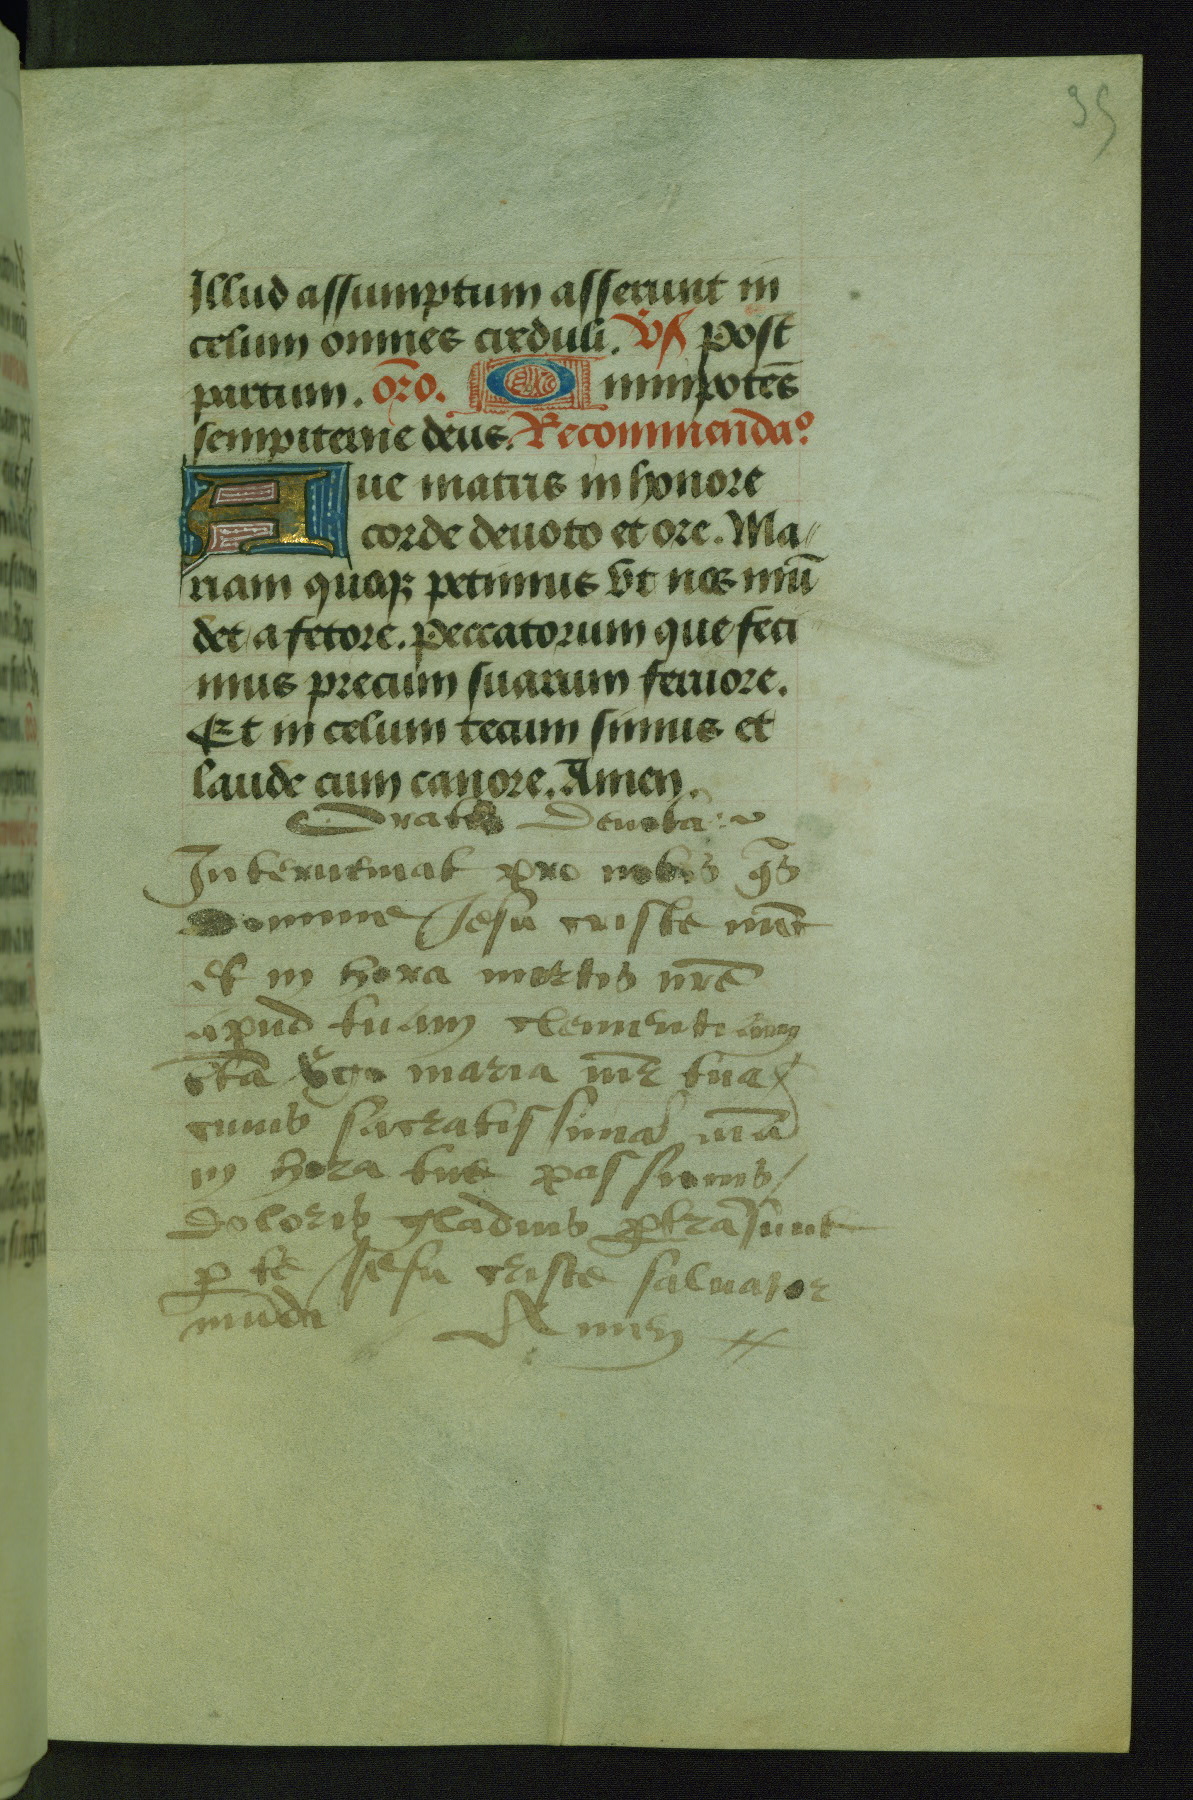 35
Illud assumptum asserunt in
celum omnes creduli. Vs post
partum. oro. Omnipotēs
sempiterne deus. Recommendaº
Aue matris in honore
corde deuoto et ore. Ma
riam quoqꝫ petimus vt nos mū
det a fetore. peccatorum que feci
mus precum suarum feruore.
Et in celum tecum simus et
laude cum canore. Amen.
Oratio Deuota
Interueniat pro nobis qs
Domine Jesu criste nūc
et in hora mortis nrē
apud tuam clementiam
btā Vgo maria mr̄ tua
cuius sacratissimā aīā
in hora tue passionis
doloris gladius ptrāsiuit
p te Jesu criste saluator
mūdi Amen